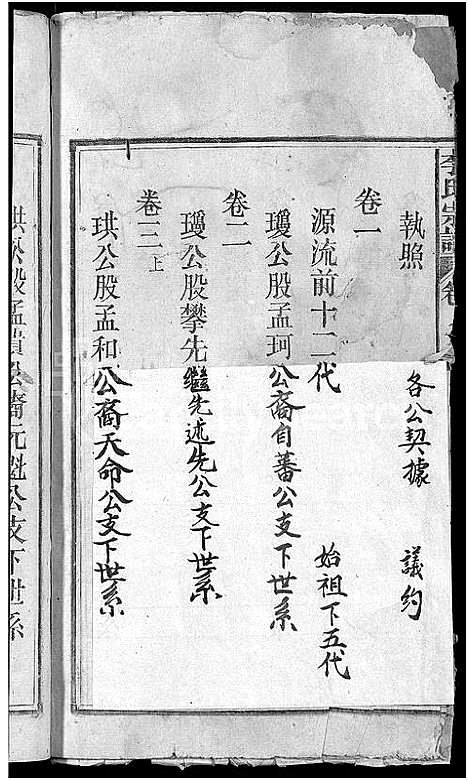 李氏宗譜 卷
執照 各公契據 議約
卷一
源流前十二代 始祖下五代
瓊公股孟珂公裔自蕃公支下世系
卷二
瓊公股攀先繼先述先公支下世系
卷三上
珙公股孟和公裔天命公支下世系
珙公股孟瀆公裔元魁公支下世系